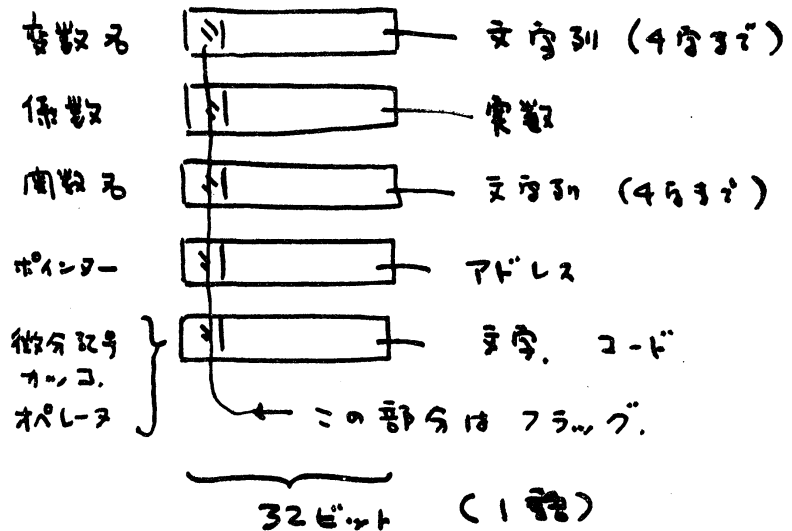 変数名 文字列（4字まで）
係数 実数
関数名 文字列（4字まで）
ポインター アドレス
微分記号 文字、コード
カッコ、
オペレータ この部分はフラッグ.
32ビット （1語）